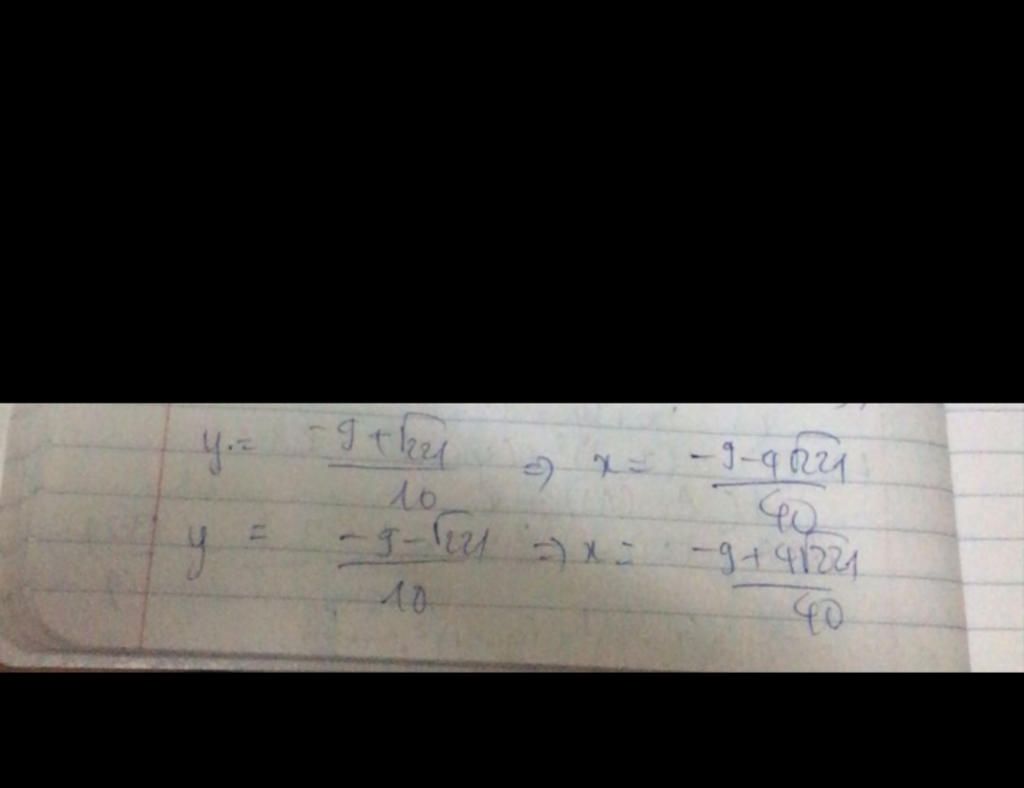 y = -9+√221/10 ⇒ x = -9-4√221/40
y = -9-√221/10 ⇒ x = -9+4√221/40